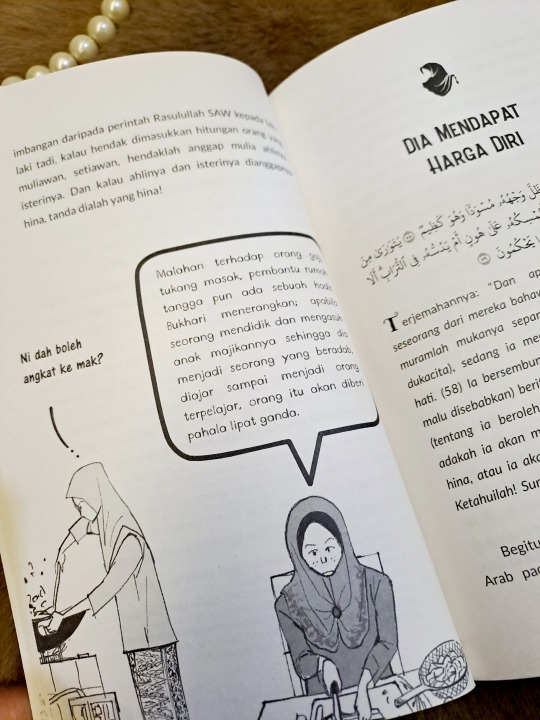 imbangan daripada perintah Rasulullah SAW kepada
laki tadi, kalau hendak dimasukkan hitungan orang yang
muliawan, setiawan, hendaklah anggap mulia ahlinya
isterinya. Dan kalau ahlinya dan isterinya dianggapnya
hina, tanda dialah yang hina!
Malahan terhadap orang gaji,
tukang masak, pembantu rumah
tangga pun ada sebuah hadis
Bukhari menerangkan; apabila
seorang mendidik dan mengasuh
anak majikannya sehingga dia
menjadi seorang yang beradab,
diajar sampai menjadi orang
terpelajar, orang itu akan diberi
pahala lipat ganda.
Ni dah boleh
angkat ke mak?
DIA MENDAPAT
HARGA DIRI
ظَلَّ وَجْهُهُۥ مُسْوَدًّا وَهُوَ كَظِيمٌ ۝ يَتَوَٰرَىٰ مِنَ
عَلَىٰ هُونٍ أَمْ يَدُسُّهُۥ فِى ٱلتُّرَابِ أَلَا
يَحْكُمُونَ
Terjemahannya: "Dan
seseorang dari mereka
muramlah mukanya
dukacita), sedang ia
hati. (58) Ia bersembunyi
malu disebabkan)
(tentang ia beroleh
adakah ia akan
hina, atau ia
Ketahuilah!
Arab